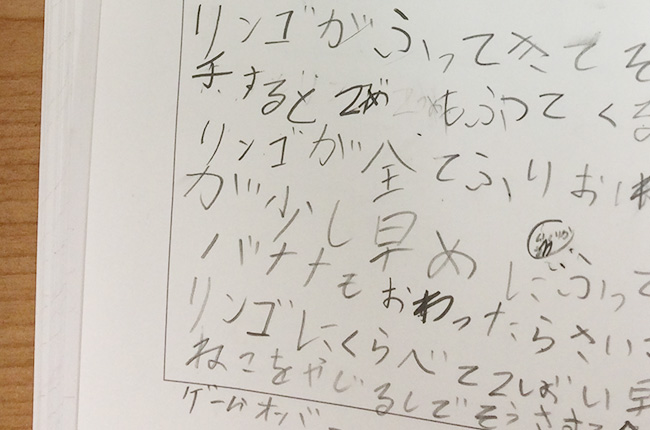 リンゴがふってきてそ
手すると2こめもふってくる
リンゴが全てふりおわ
が少し早め
バナナもおわったらさい
リンゴにくらべて2ばい早
ねこをやじるしでそうさする
ゲームオーバー